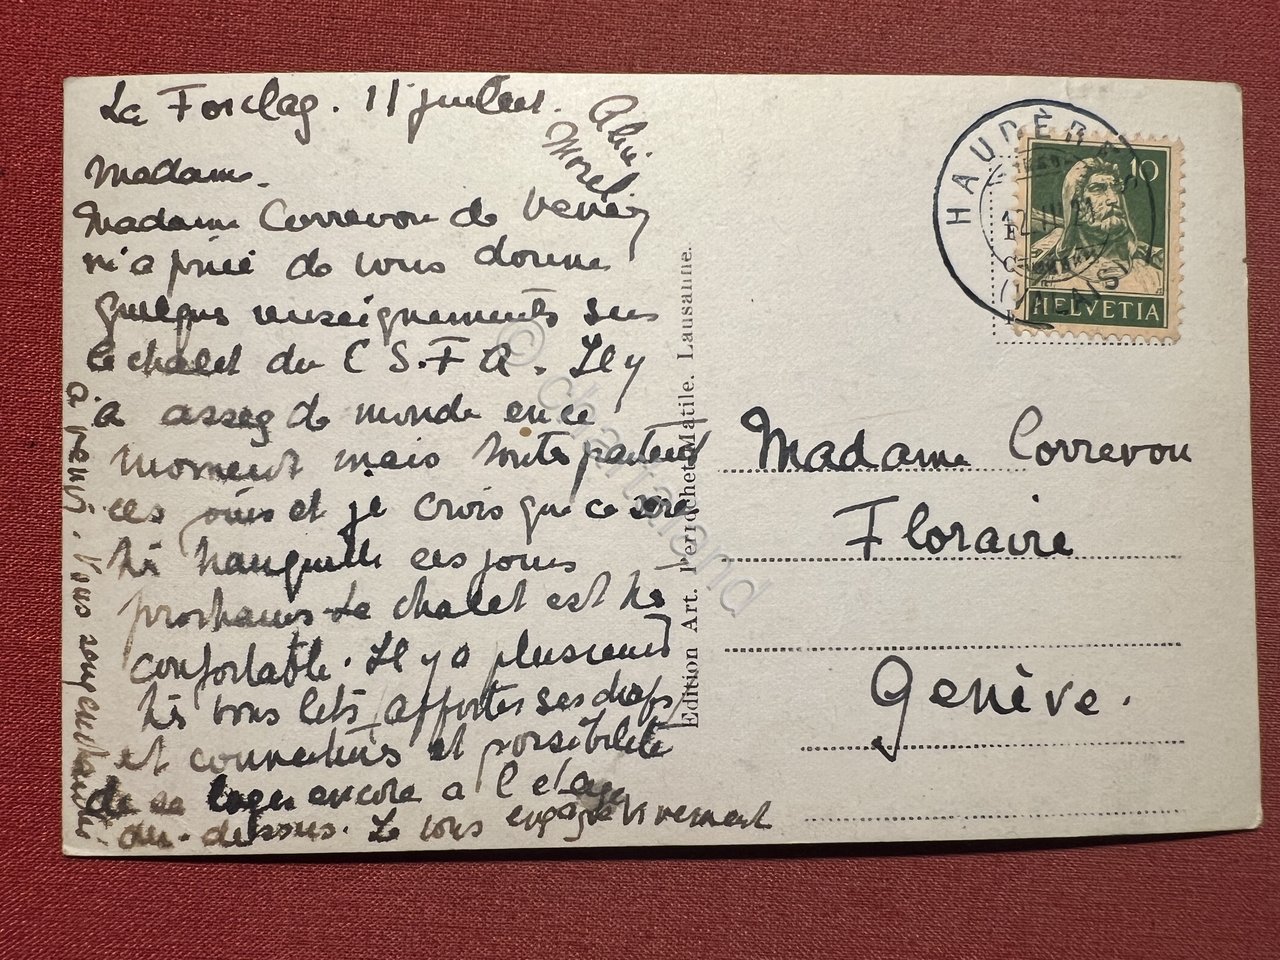 La Forclaz. 11 juillet.
Alice
Morel
Madame.
Madame Correvon de Vevey
m'a prié de vous donner
quelques renseignements sur
le chalet du C S.F A. Il y
a assez de monde en ce
moment mais tout partent
ces jours et je crois que ce sera
très tranquille ces jours
prochains. Le chalet est très
confortable. Il y a plusieurs
très bons lits, apporter ses draps
et couvertures et possibilité
de se loger encore a l'etage
au-dessus. Je vous engage vivement
à venir. Vous
Edition Art. Perrochet-Matile. Lausanne.
HAUDÈRES
(VALAIS)
10
HELVETIA
Madame Correvon
Floraire
Genève.
© cartaland